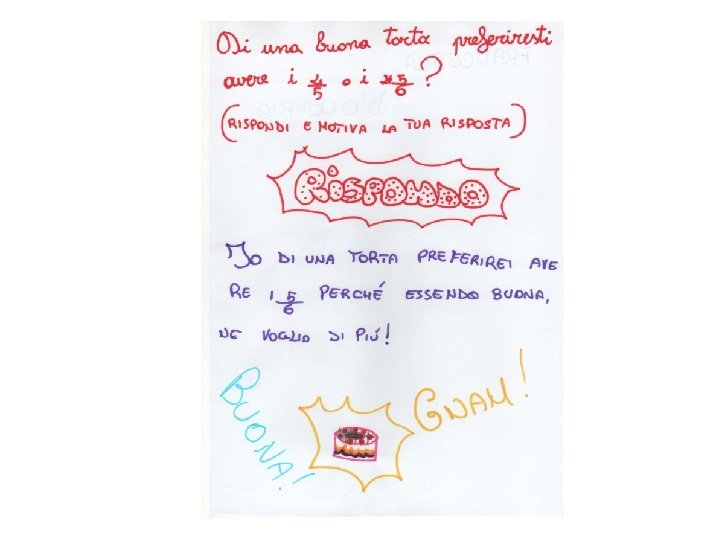 Di una buona torta preferiresti
avere i 4/5 o i 5/6?
(RISPONDI E MOTIVA LA TUA RISPOSTA)
RISPONDO
IO DI UNA TORTA PREFERIREI AVE
RE I 5/6 PERCHÉ ESSENDO BUONA,
NE VOGLIO DI PIÚ!
BUONA!
GNAM!